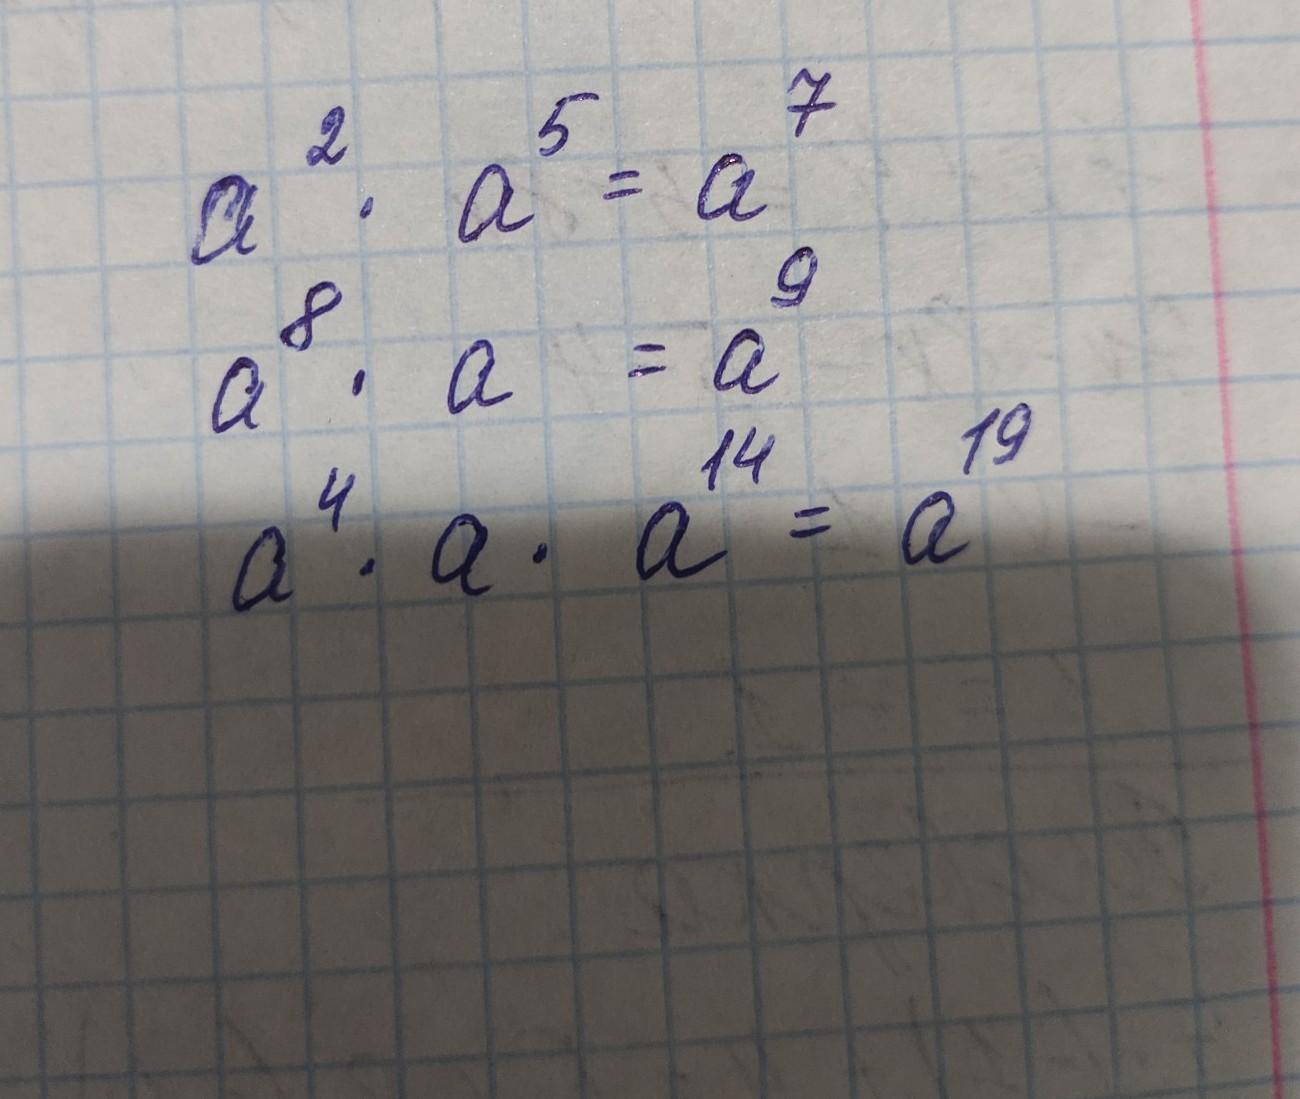 a² · a⁵ = a⁷
a⁸ · a = a⁹
a⁴ · a · a¹⁴ = a¹⁹